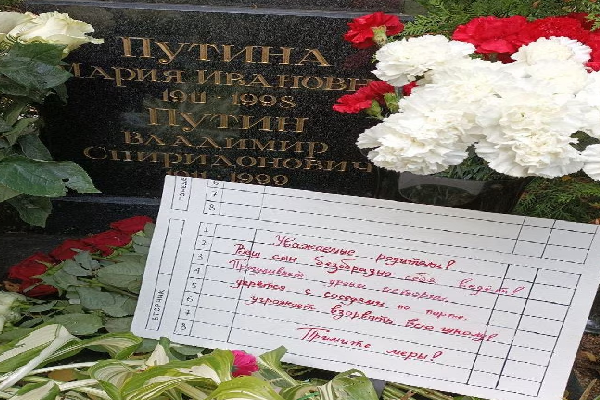 ПУТИНА
МАРИЯ ИВАНОВН
1911 1998
ПУТИН
ВЛАДИМИР
СПИРИДОНОВИЧ
1911 1999
7
8
ВТОРНИК
1
2
3
4
5
6
7
8
Уважаемые родители!
Ваш сын безобразно себя ведёт!
Прогуливает уроки истории,
дерётся с соседями по парте,
угрожает взорвать всю школу!
Примите меры!